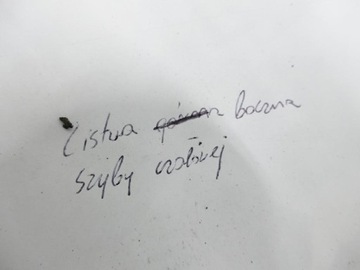 Listwa górna boczna
szyby czołowej